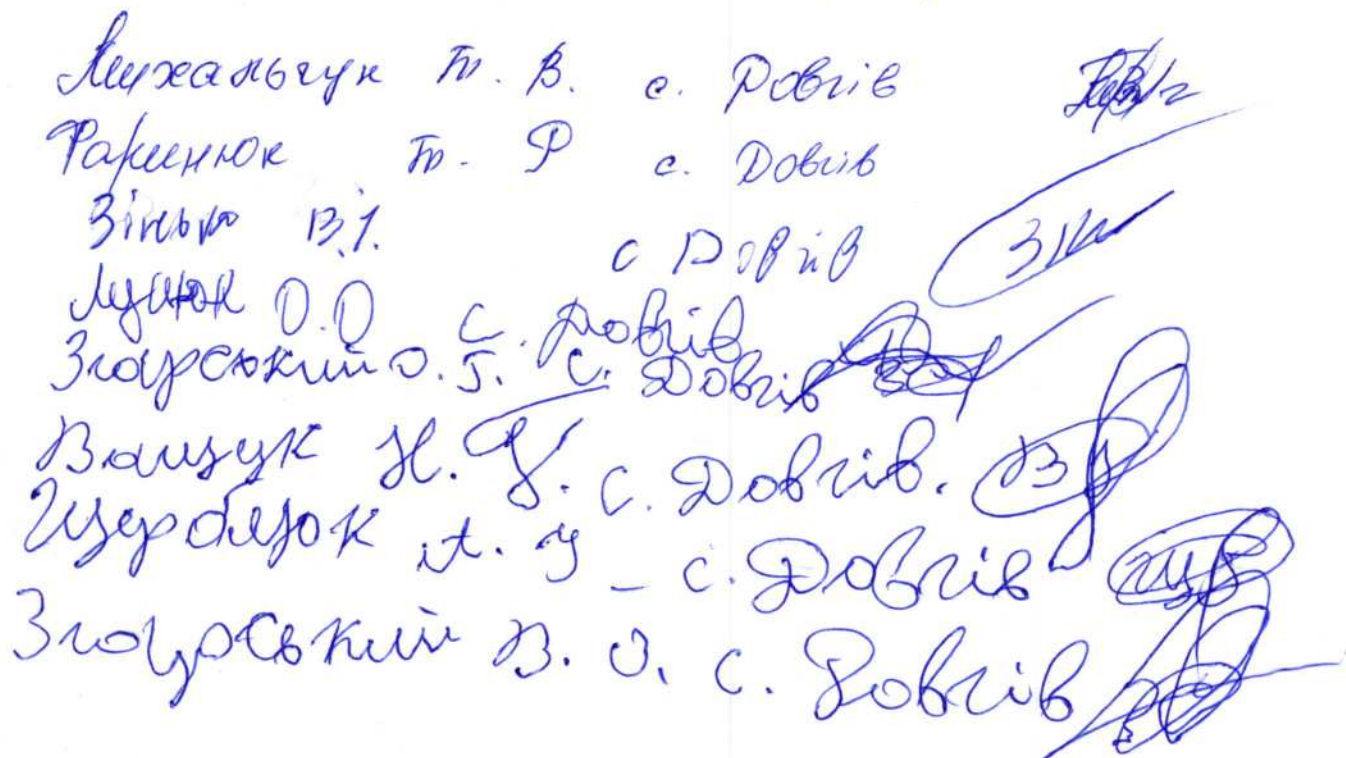 Михальчук Т. В. с. Довгів
Т. Р с. Довгів
Зінько В.І. с Довгів
Луцюк О.О с. Довгів
Згарський О. Г. с. Довгів
Ващук Н. У. с. Довгів.
А. У - с. Довгів
Згарський В. О. с. Довгів